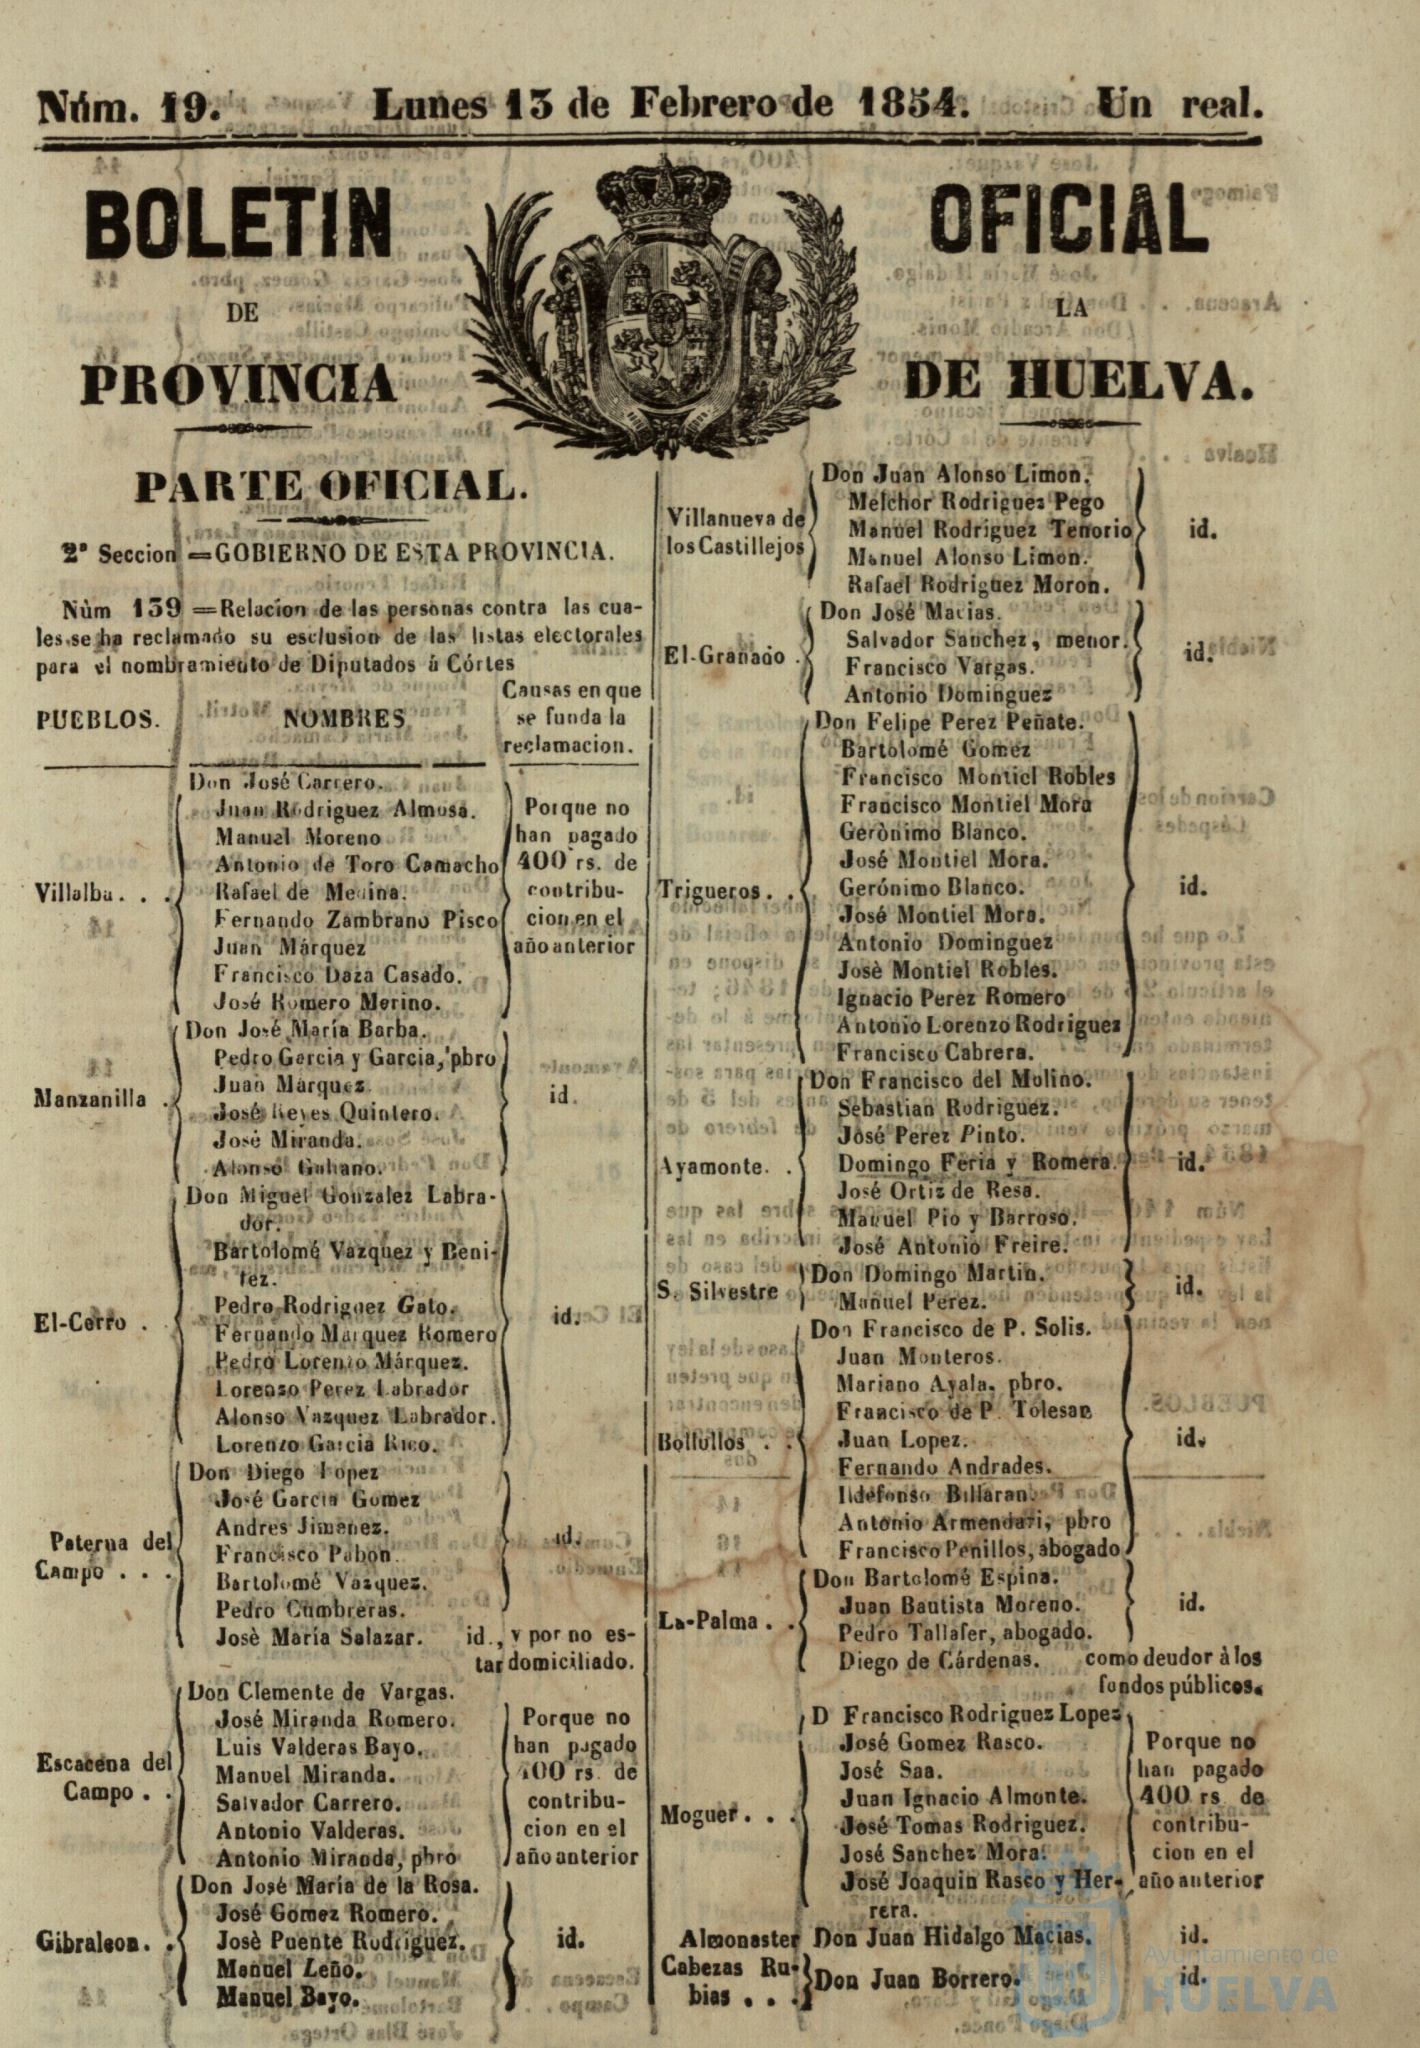 Núm. 19. Lunes 13 de Febrero de 1854. Un real.
BOLETIN OFICIAL
DE LA
PROVINCIA DE HUELVA.
PARTE OFICIAL.
2ª Seccion =GOBIERNO DE ESTA PROVINCIA.
Nùm 139 =Relacion de las personas contra las cua-
les se ha reclamado su esclusion de las listas electorales
para el nombramiento de Diputados á Córtes
PUEBLOS. NOMBRES Causas en que
se funda la
reclamacion.
Villalba. . .
Don José Carrero.
Juan Rodriguez Almosa.
Manuel Moreno
Antonio de Toro Camacho
Rafael de Medina.
Fernando Zambrano Pisco
Juan Márquez
Francisco Daza Casado.
José Romero Merino.
Porque no
han pagado
400 rs. de
contribu-
cion en el
año anterior
Manzanilla .
Don José María Barba.
Pedro Garcia y Garcia, pbro
Juan Márquez.
José Reyes Quintero.
José Miranda.
Alonso Galiano.
id.
El-Cerro .
Don Miguel Gonzalez Labra-
dor.
Bartolomé Vazquez y Beni-
tez.
Pedro Rodriguez Gato.
Fernando Marquez Romero
Pedro Lorenzo Márquez.
Lorenzo Perez Labrador
Alonso Vazquez Labrador.
Lorenzo Garcia Rico.
id.
Paterna del
Campo . . .
Don Diego Lopez
José Garcia Gomez
Andres Jimenez.
Francisco Pabon.
Bartolomé Vazquez.
Pedro Cumbreras.
id.
Josè María Salazar. id., y por no es-
tar domiciliado.
Escacena del
Campo . .
Don Clemente de Vargas.
José Miranda Romero.
Luis Valderas Bayo.
Manuel Miranda.
Salvador Carrero.
Antonio Valderas.
Antonio Miranda, pbro
Porque no
han pagado
400 rs. de
contribu-
cion en el
año anterior
Gibraleon. . .
Don José María de la Rosa.
José Gomez Romero.
Josè Puente Rodriguez.
Manuel Leño.
Manuel Bayo.
id.
Villanueva de
los Castillejos
Don Juan Alonso Limon.
Melchor Rodriguez Pego
Manuel Rodriguez Tenorio
Manuel Alonso Limon.
Rafael Rodriguez Moron.
id.
El-Granado .
Don José Macias.
Salvador Sanchez, menor.
Francisco Vargas.
Antonio Dominguez
id.
Trigueros. . .
Don Felipe Perez Peñate.
Bartolomé Gomez
Francisco Montiel Robles
Francisco Montiel Mora
Gerònimo Blanco.
José Montiel Mora.
Gerónimo Blanco.
José Montiel Mora.
Antonio Dominguez
Josè Montiel Robles.
Ignacio Perez Romero
Antonio Lorenzo Rodriguez
Francisco Cabrera.
id.
Ayamonte. .
Don Francisco del Molino.
Sebastian Rodriguez.
José Perez Pinto.
Domingo Feria y Romera.
José Ortiz de Resa.
Manuel Pio y Barroso.
José Antonio Freire.
id.
S. Silvestre
Don Domingo Martin.
Manuel Perez.
id.
Bollullos . .
Don Francisco de P. Solis.
Juan Monteros.
Mariano Ayala, pbro.
Francisco de P. Tolesan
Juan Lopez.
Fernando Andrades.
Ildefonso Billaran.
Antonio Armendari, pbro
Francisco Penillos, abogado
id.
La-Palma . .
Don Bartolomé Espina.
Juan Bautista Moreno.
Pedro Tallafer, abogado.
id.
Diego de Cárdenas. como deudor à los
fondos públicos.
Moguer. . . .
D Francisco Rodriguez Lopez
José Gomez Rasco.
José Saa.
Juan Ignacio Almonte.
José Tomas Rodriguez.
José Sanchez Mora.
José Joaquin Rasco y Her-
rera.
Porque no
han pagado
400 rs de
contribu-
cion en el
año anterior
Almonaster Don Juan Hidalgo Macias. id.
Cabezas Ru-
bias . . . Don Juan Borrero. id.
Ayuntamiento de
HUELVA